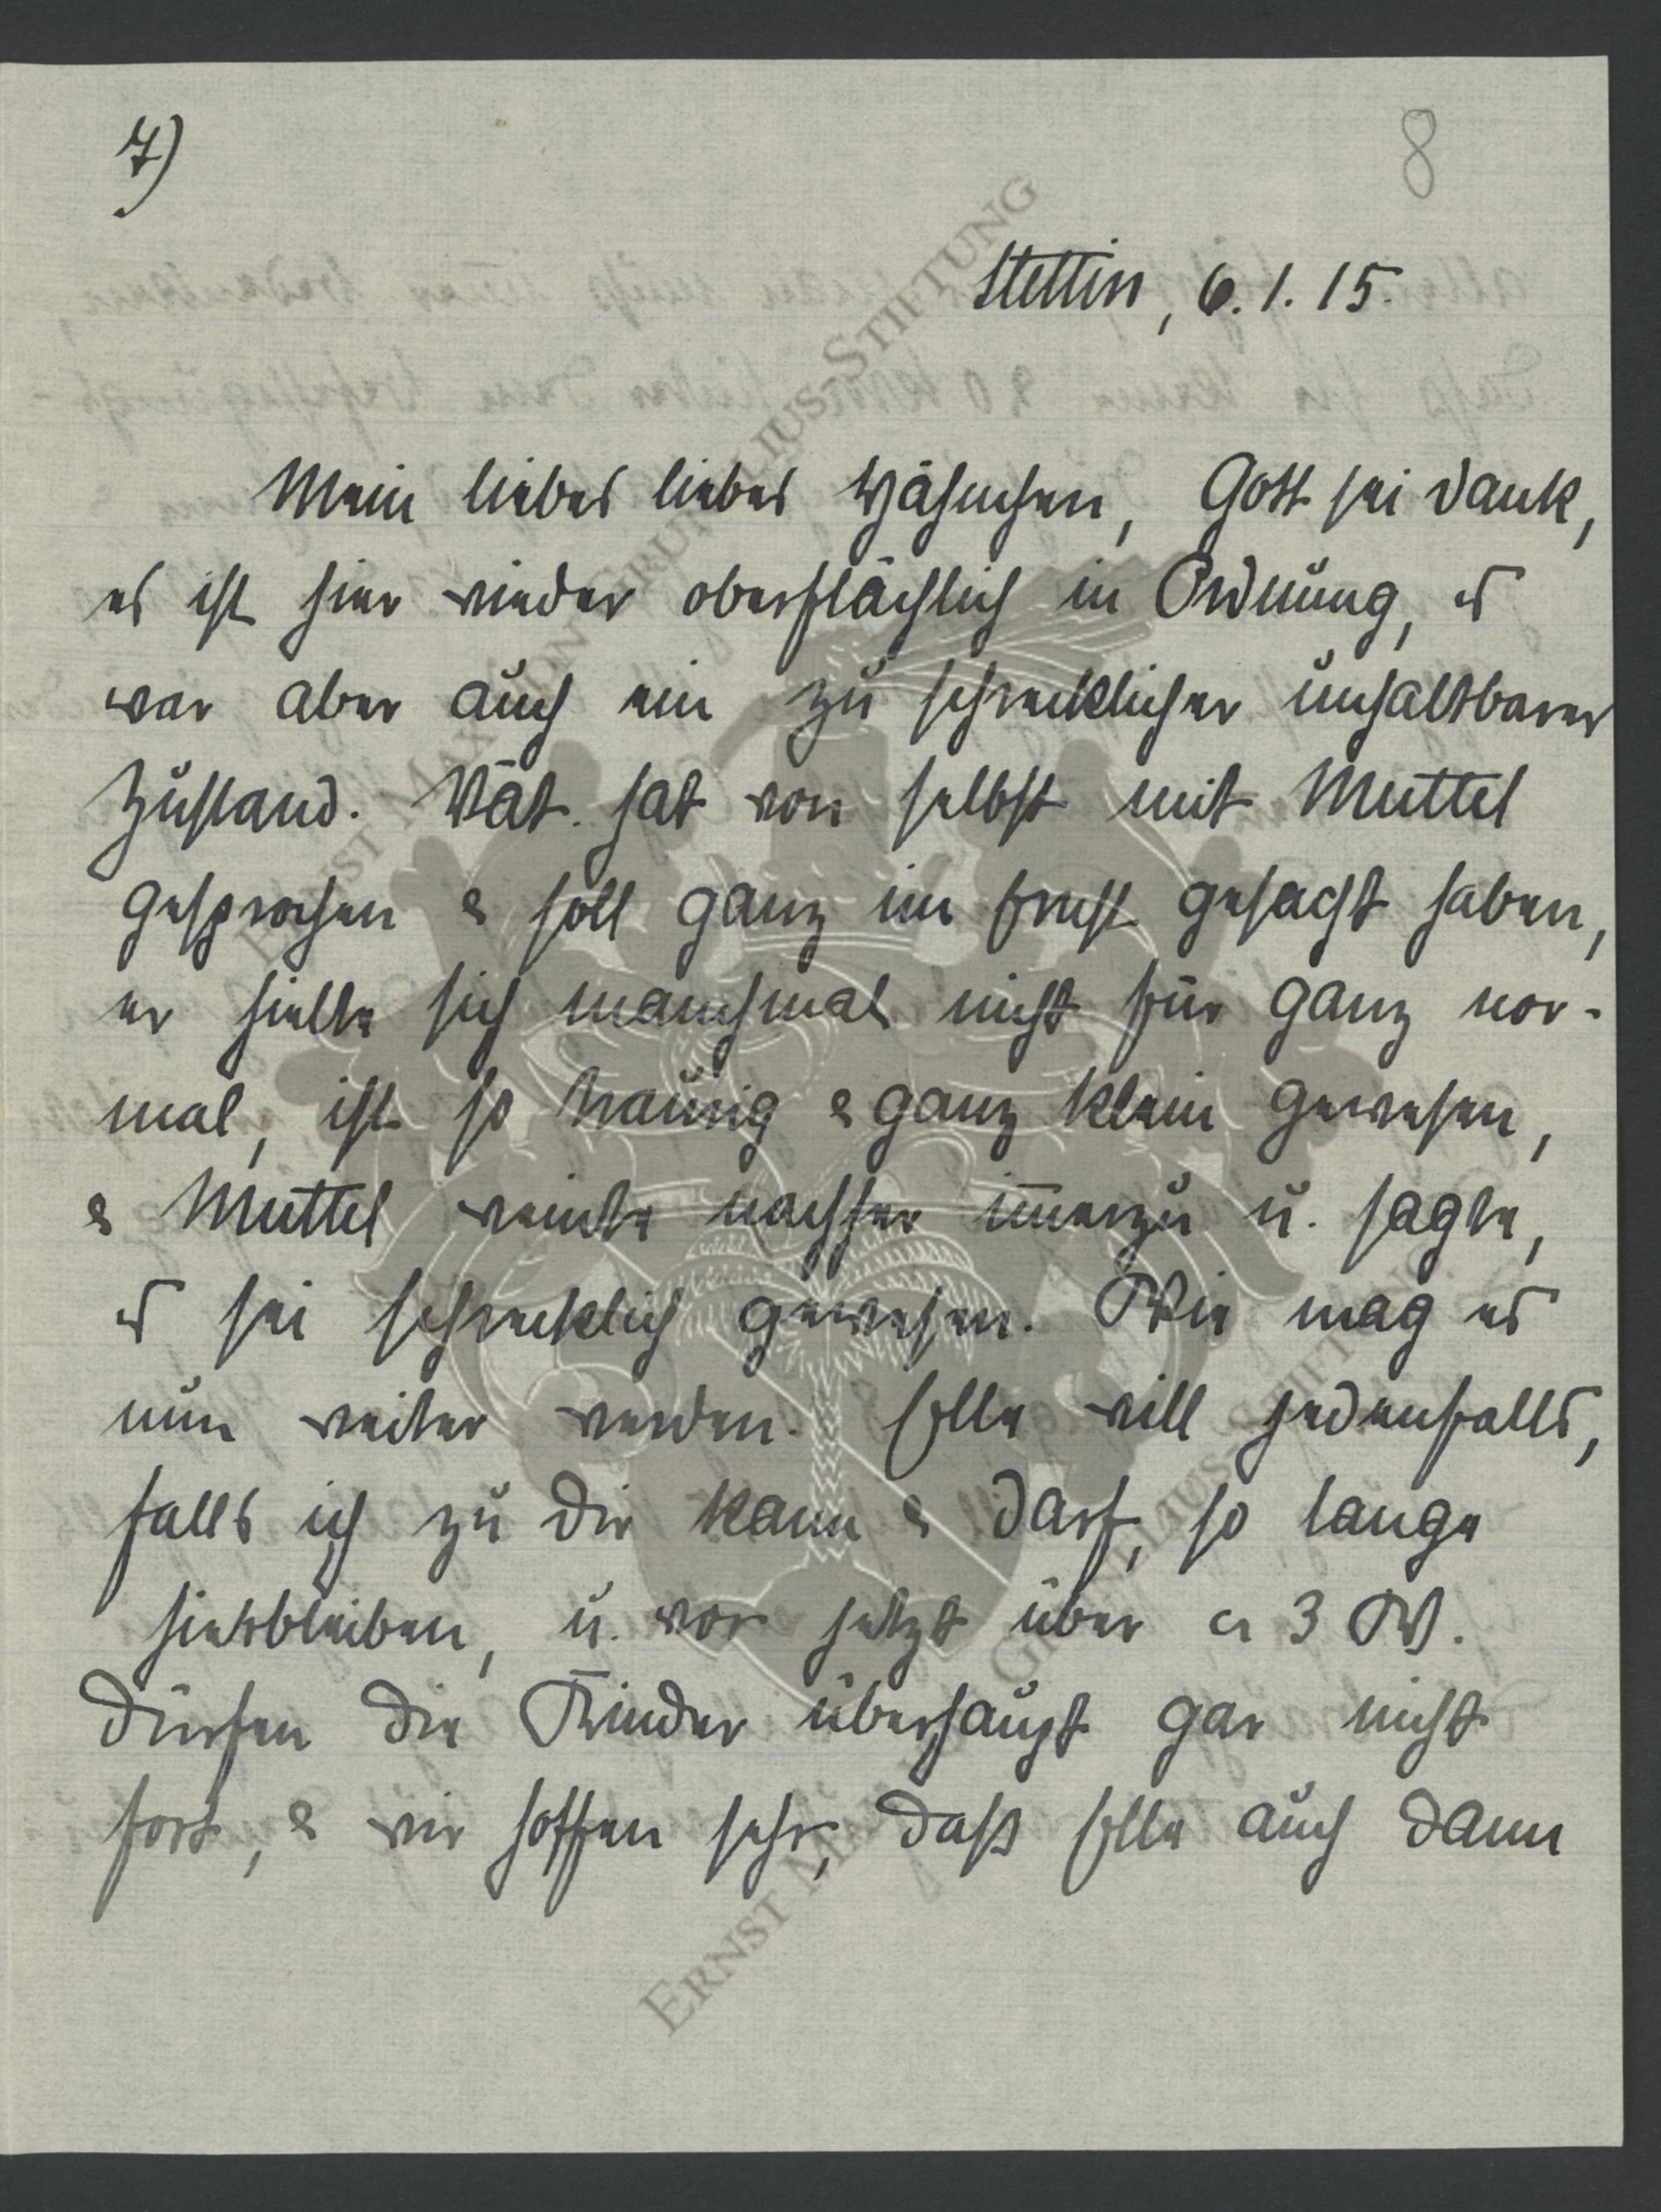 7)
8
Stettin, 6. 1. 15.
Mein liebes liebes Hähnchen, Gott sei Dank,
es ist hier wieder oberflächlich in Ordnung, es
war aber auch ein zu schrecklicher unhaltbarer
Zustand. Vät. hat von selbst mit Muttel
gesprochen & soll ganz im Ernst gesagt haben,
er hielte sich manchmal nicht für ganz nor-
mal, ist so traurig & ganz klein gewesen,
& Muttel weinte nachher immerzu u. sagte,
es sei schrecklich gewesen. Wie mag es
nun weiter werden. Elle will jedenfalls,
falls ich zu dir kann & darf, so lange
hierbleiben, u. vor jetzt über ca 3 W.
dürfen die Kinder überhaupt gar nicht
fort, & wir hoffen sehr, daß Elle auch dann
ERNST MAXIMILIAN GRUMILIUS-STIFTUNG
ERNST MAXIMILIAN GRUMILIUS-STIFTUNG